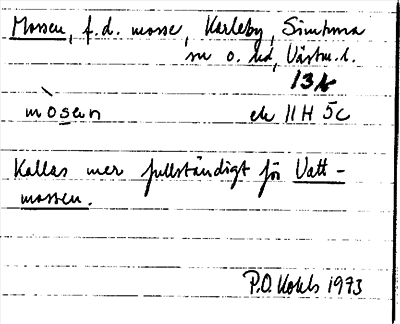 Mossen, f.d. mosse, Karleby, Simtuna
sn o. hd, Västm. l.
13b
mòsen ek 11H 5c
Kallas mer fullständigt för Vatt-
mossen.
P.O. Kohls 1973